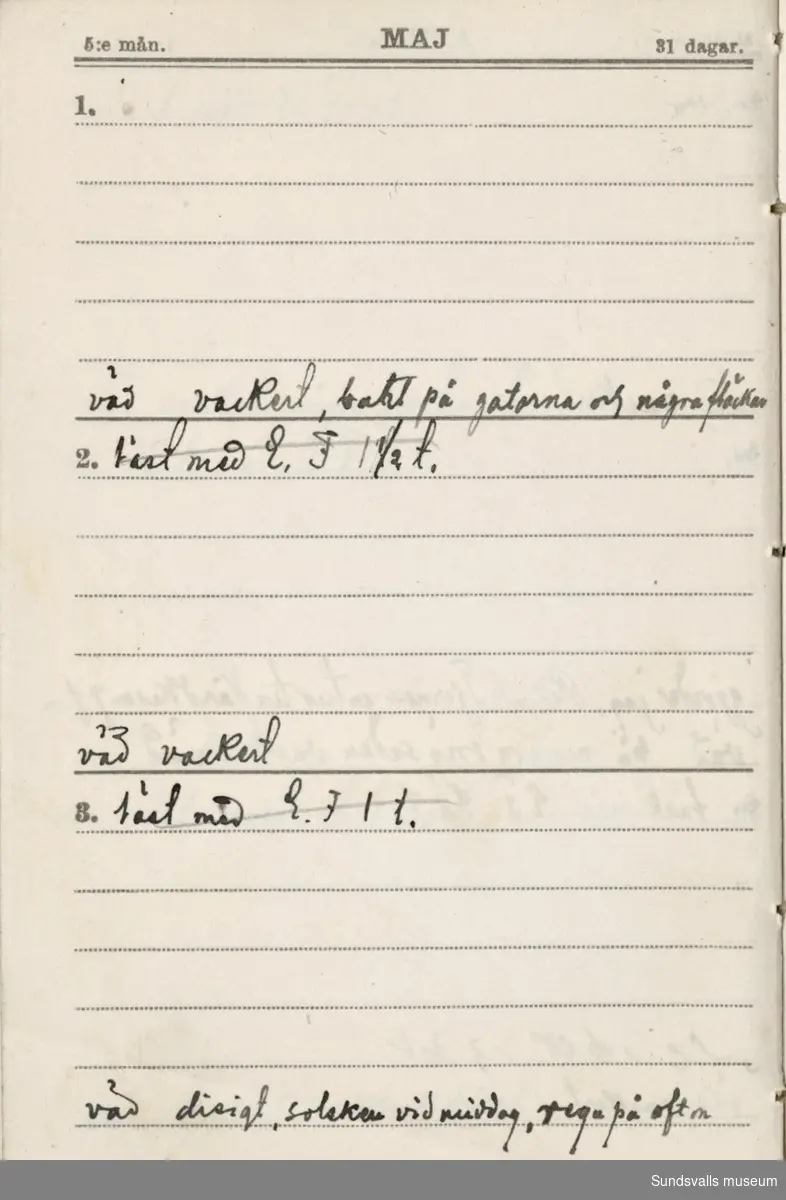 5:e mån. MAJ 31 dagar.
1.
väd vackert, bart på gatorna och några fläckar
2. läst med E. F 1 1/2 t.
väd vackert
3. läst med E. F 1 t.
väd disigt, solsken vid middag, regn på afton
Sundsvalls museum